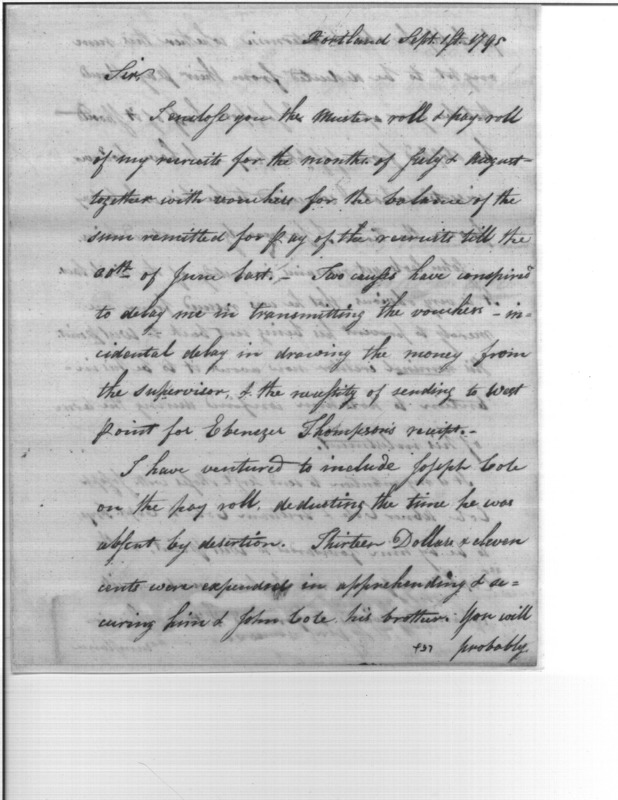 Portland Sept. 1st. 1795
Sir
I enclose you the Muster-roll & pay-roll
of my recruits for the months of July & August
together with vouchers for the balance of the
sum remitted for pay of the recruits till the
30th of June last. – Two causes have conspired
to delay me in transmitting the vouchers – in-
cidental delay in drawing the money from
the supervisor, & the necessity of sending to West
Point for Ebenezer Thompson's receipt. –
I have ventured to include Joseph Cole
on the pay roll, deducting the time he was
absent by desertion. Thirteen Dollars & eleven
cents were expended in apprehending & se-
curing him & John Cole his brother. You will
937 probably